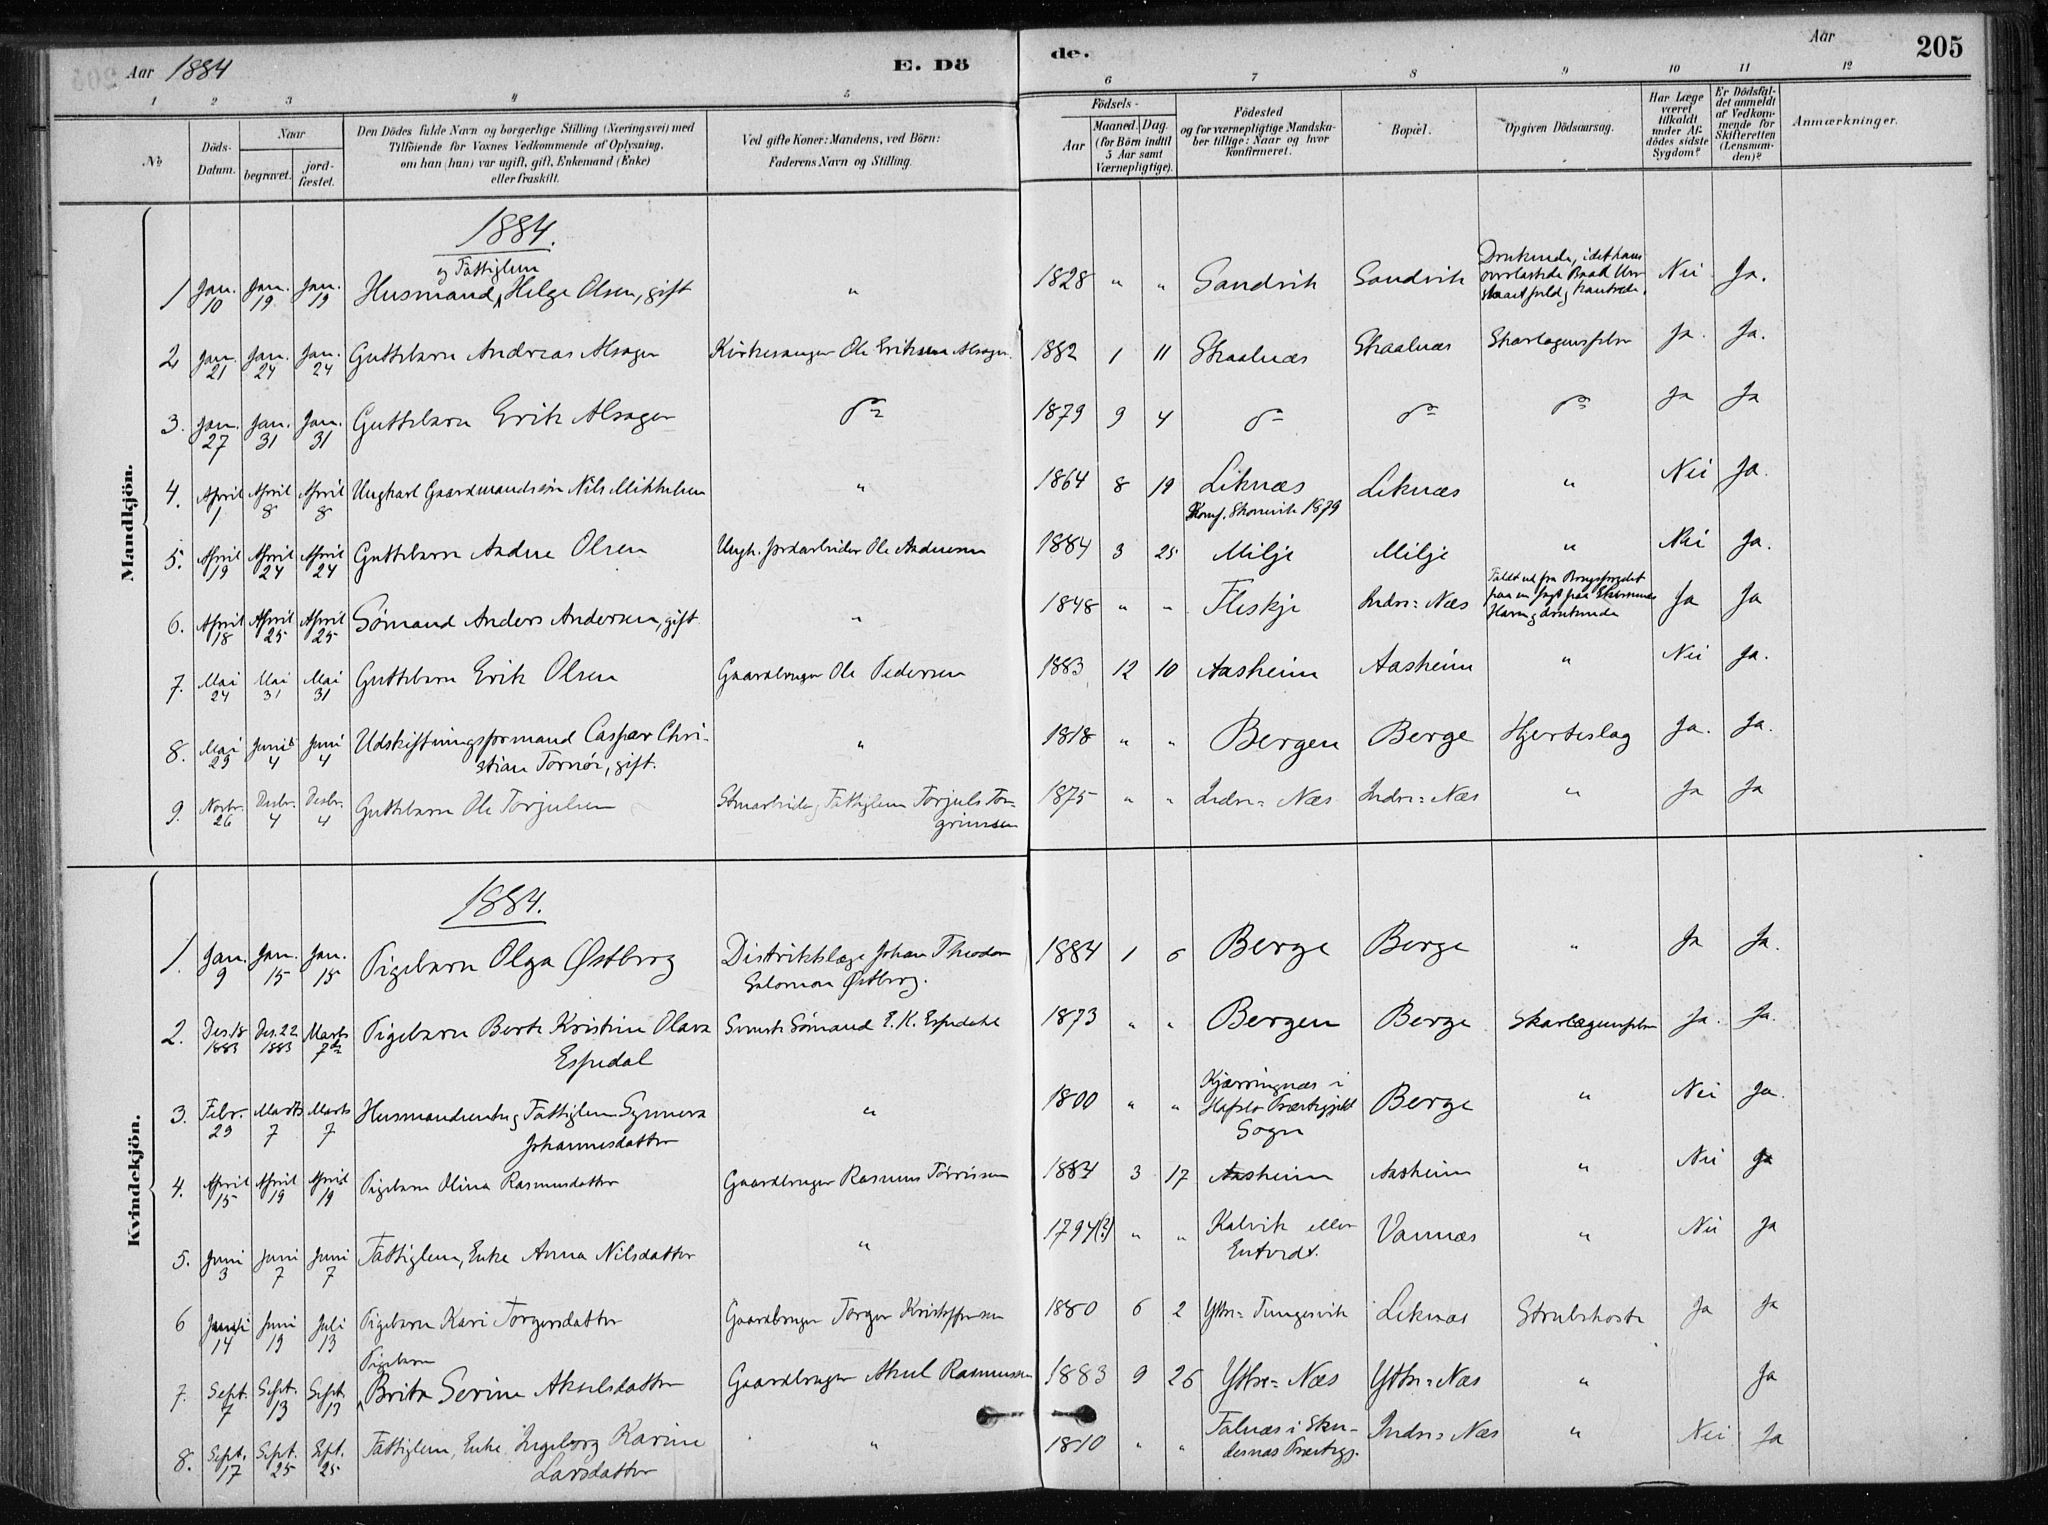 Aar 1884 E. Dö de. Aar 205
1 2 3 4 5 6 7 8 9 10 11 12
No
Döds-Datum.
Naar
begravet.
jord-fæstet.
Den Dödes fulde Navn og borgerlige Stilling (Næringsvei) med
Tilföiende for Voxnes Vedkommende af Oplysning,
om han (hun) var ugift, gift, Enkemand (Enke)
eller fraskilt.
Ved gifte Koner: Mandens, ved Börn:
Faderens Navn og Stilling.
Födsels-
Aar
Maaned. Dag.
(for Börn indtil
5 Aar samt
Værnepligtige).
Födested
og for værnepligtige Mandska-
ber tillige: Naar og hvor
konfirmeret.
Bopæl.
Opgiven Dödsaarsag.
Har Læge
været
tilkaldt
under Af-
dödes sidste
Sygdom?
Er Dödsfal-
det anmeldt
af Vedkom-
mende for
Skifteretten
(Lensman-
den)?
Anmærkninger.
Mandkjön.
1884.
og Fattiglem
1 Jan. 10 Jan. 19 Jan. 19 Husmand, Helge Olsen, gift " 1828 " " Sandvik Sandvik Druknede, idet hans overlastede Baad Nei Ja.
2 Jan. 21 Jan. 24 Jan. 24 Guttebarn Andreas Alsager Kirkesanger Ole Eriksen Alsager. 1882 1 11 Skaalnæs Skaalnæs Skarlagensfeber Ja. Ja.
3. Jan. 27 Jan. 31 Jan. 31 Guttebarn Erik Alsager do 1879 9 4 do do do Ja Ja
4. April 1 April 8 April 8 Ungkarl Gaardmandssøn Nils Mikkelsen " 1864 8 19 Liknæs Konf. Skonevik 1879 Liknæs " Nei Ja.
5. April 19 April 24 April 24 Guttebarn Andre Olsen Ungk. Jordarbeider Ole Andersen 1884 3 25 Milje Milje " Nei Ja.
6. April 18 April 25 April 25 Sømand Anders Andersen, gift. " 1848 " " Fleskje Indre=Næs Faldt ud fra Bougspryde paa en Jagt paa Havn og druknede Ja Ja
7. Mai 24 Mai 31 Mai 31 Guttebarn Erik Olsen Gaardbruger Ole Pedersen 1883 12 10 Aasheim Aasheim " Nei Ja.
8. Mai 29 Juni 4 Juni 4 Udskiftningsformand Caspar Chri-
stian Tornøe, gift. " 1818 " " Bergen Berge Hjerteslag Ja. Ja.
9. Novbr. 26 Desbr. 4 Desbr. 4 Guttebarn Ole Torjulsen Stenarbeider, Fattiglem Torjuls Tor-
grimsen 1875 " " Indre=Næs Indre=Næs " Ja Ja
Kvindekjön.
1884.
1. Jan. 9 Jan. 15 Jan. 15 Pigebarn Olga Østberg Distriktslæge Johan Theodor
Salomon Østberg. 1884 1 6 Berge Berge " Ja Ja.
2. Des. 18 1883 Des. 22 1883 Marts 7de Pigebarn Berte Kristine Olava
Espedal Svensk Sømand E. K. Espedahl 1873 " " Bergen Berge Skarlagensfeber Ja. Ja.
3. Febr. 29 Marts 7 Marts 7 Husmandsenke og Fattiglem Synneva
Johannesdatter " 1800 " " Kjærringnæs i
Hafslo Præstegjeld
Sogn Berge " Nei Ja.
4. April 15 April 19 April 19 Pigebarn Olina Rasmusdatter Gaardbruger Rasmus Tørrissen 1884 3 17 Aasheim Aasheim " Nei Ja
5. Juni 3 Juni 7 Juni 7 Fattiglem, Enke Anna Nilsdatter " 1794(?) " " Kalvik eller
Entvedt. Vannæs " Nei Ja
6 Juni 14 Juni 19 Juli 13 Pigebarn Kari Torgersdatter Gaardbruger Torger Kristoffersen 1880 6 2 Ytre=Tungesvik Liknæs Strubehoste Ja Ja
Pigebarn
7. Sept. 7 Sept. 13 Sept. 13 Brita Serine Akselsdatter Gaardbruger Aksel Rasmussen 1883 9 26 Ytre=Næs Ytre=Næs " Ja
8. Sept. 17 Sept. 25 Sept. 25 Fattiglem, Enke, Ingeborg Karine
Larsdatter " 1810 " " Falnæs i Sku-
desnæs Præstegj. Indre=Næs " Nei Ja